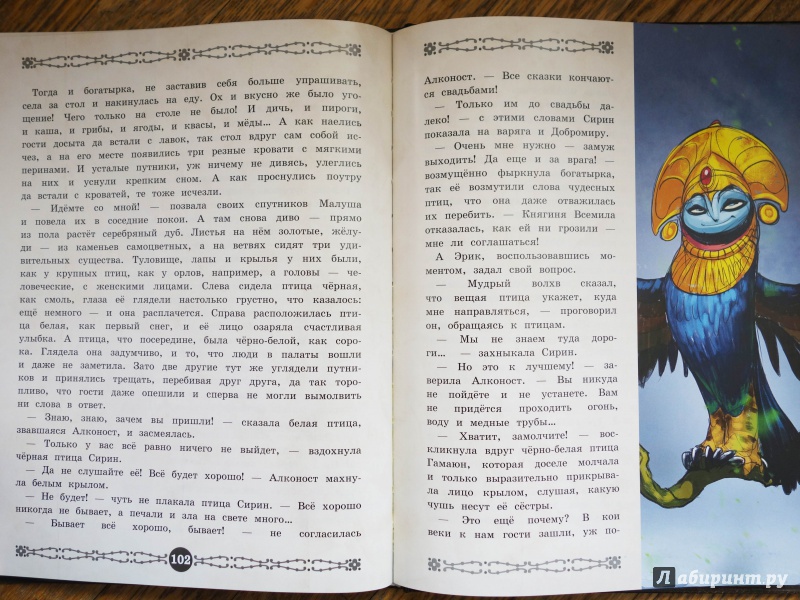 Тогда и богатырка, не заставив себя больше упрашивать,
села за стол и накинулась на еду. Ох и вкусно же было уго-
щение! Чего только на столе не было! И дичь, и пироги,
и каша, и грибы, и ягоды, и квасы, и мёды... А как наелись
гости досыта да встали с лавок, так стол вдруг сам собой ис-
чез, а на его месте появились три резные кровати с мягкими
перинами. И усталые путники, уж ничему не дивясь, улеглись
на них и уснули крепким сном. А как проснулись поутру
да встали с кроватей, те тоже исчезли.
— Идёмте со мной! — позвала своих спутников Малуша
и повела их в соседние покои. А там снова диво — прямо
из пола растёт серебряный дуб. Листья на нём золотые, жёлу-
ди — из каменьев самоцветных, а на ветвях сидят три уди-
вительных существа. Туловище, лапы и крылья у них были,
как у крупных птиц, как у орлов, например, а головы — че-
ловеческие, с женскими лицами. Слева сидела птица чёрная,
как смоль, глаза её глядели настолько грустно, что казалось:
ещё немного — и она расплачется. Справа расположилась пти-
ца белая, как первый снег, и её лицо озаряла счастливая
улыбка. А птица, что посередине, была чёрно-белой, как соро-
ка. Глядела она задумчиво, и то, что люди в палаты вошли
и даже не заметила. Зато две другие тут же углядели путни-
ков и принялись трещать, перебивая друг друга, да так торо-
пливо, что гости даже опешили и сперва не могли вымолвить
ни слова в ответ.
— Знаю, знаю, зачем вы пришли! — сказала белая птица,
звавшаяся Алконост, и засмеялась.
— Только у вас всё равно ничего не выйдет, — вздохнула
чёрная птица Сирин.
— Да не слушайте её! Всё будет хорошо! — Алконост махну-
ла белым крылом.
— Не будет! — чуть не плакала птица Сирин. — Всё хорошо
никогда не бывает, а печали и зла на свете много...
— Бывает всё хорошо, бывает! — не согласилась
102
Алконост. — Все сказки кончают-
ся свадьбами!
— Только им до свадьбы да-
леко! — с этими словами Сирин
показала на варяга и Добромиру.
— Очень мне нужно — замуж
выходить! Да еще и за врага! —
возмущённо фыркнула богатырка,
так её возмутили слова чудесных
птиц, что она даже отважилась
их перебить. — Княгиня Всемила
отказалась, как ей ни грозили —
мне ли соглашаться!
А Эрик, воспользовавшись мо-
ментом, задал свой вопрос.
— Мудрый волхв сказал,
что вещая птица укажет, куда
мне направляться, — проговорил
он, обращаясь к птицам.
— Мы не знаем туда доро-
ги... — захныкала Сирин.
— Но это к лучшему! — за-
верила Алконост. — Вы никуда
не пойдёте и не устанете. Вам
не придётся проходить огонь,
воду и медные трубы...
— Хватит, замолчите! — вос-
кликнула вдруг чёрно-белая птица
Гамаюн, которая доселе молчала
и только выразительно прикрыва-
ла лицо крылом, слушая, какую
чушь несут её сёстры.
— Это ещё почему? В кои
веки к нам гости зашли, уж по-
Лабиринт.ру